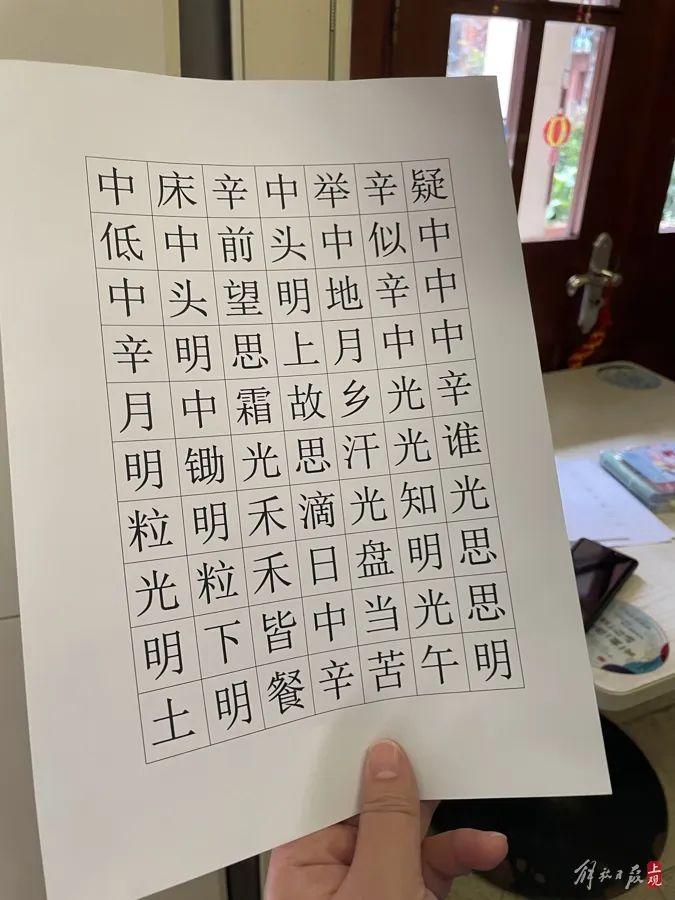 中床辛中举辛疑
低中前头中似中
中头望明地辛中
辛明思上月中中
月中霜故乡光辛
明锄光思汗光谁
粒明禾滴光知光
光粒禾日盘明思
明下皆中当光思
土明餐辛苦午明
解放日报
上观